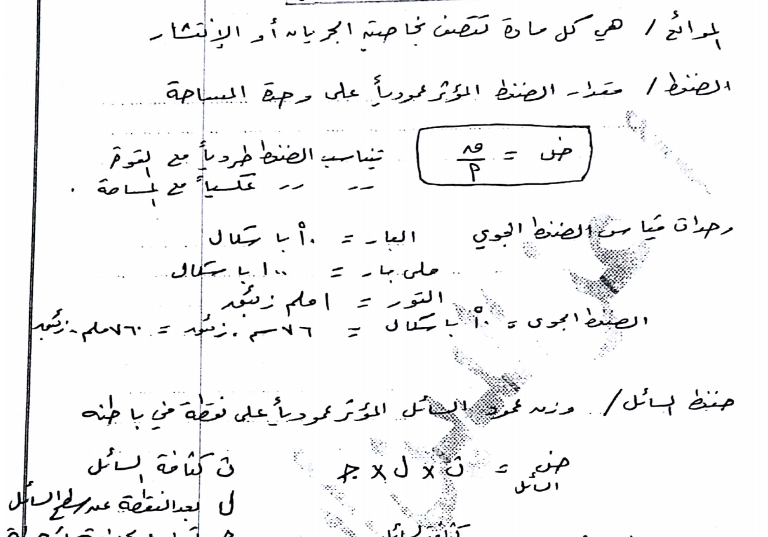 الموائع / هي كل مادة تتصف بخاصية الجريان أو الإنتشار
الضغط / مقدار الضغط المؤثر عمودياً على وحدة المساحة
ض = ق/م تيناسب الضغط طردياً مع القوة
// // عكسياً مع المساحة .
وحدات قياس الضغط الجوي البار = ١٠٥ باسكال
ملي بار = ١٠٠ باسكال
التور = ١ ملم زئبق
الضغط الجوي = ١٠٥ باسكال = ٧٦ سم . زئبق = ٧٦٠ ملم . زئبق
ضغط السائل / وزن عمود السائل المؤثر عمودياً على نقطة في باطنه
ض السائل = ث × ل × جـ ث كثافة السائل
ل بعد النقطة عن سطح السائل
كثافة السائل